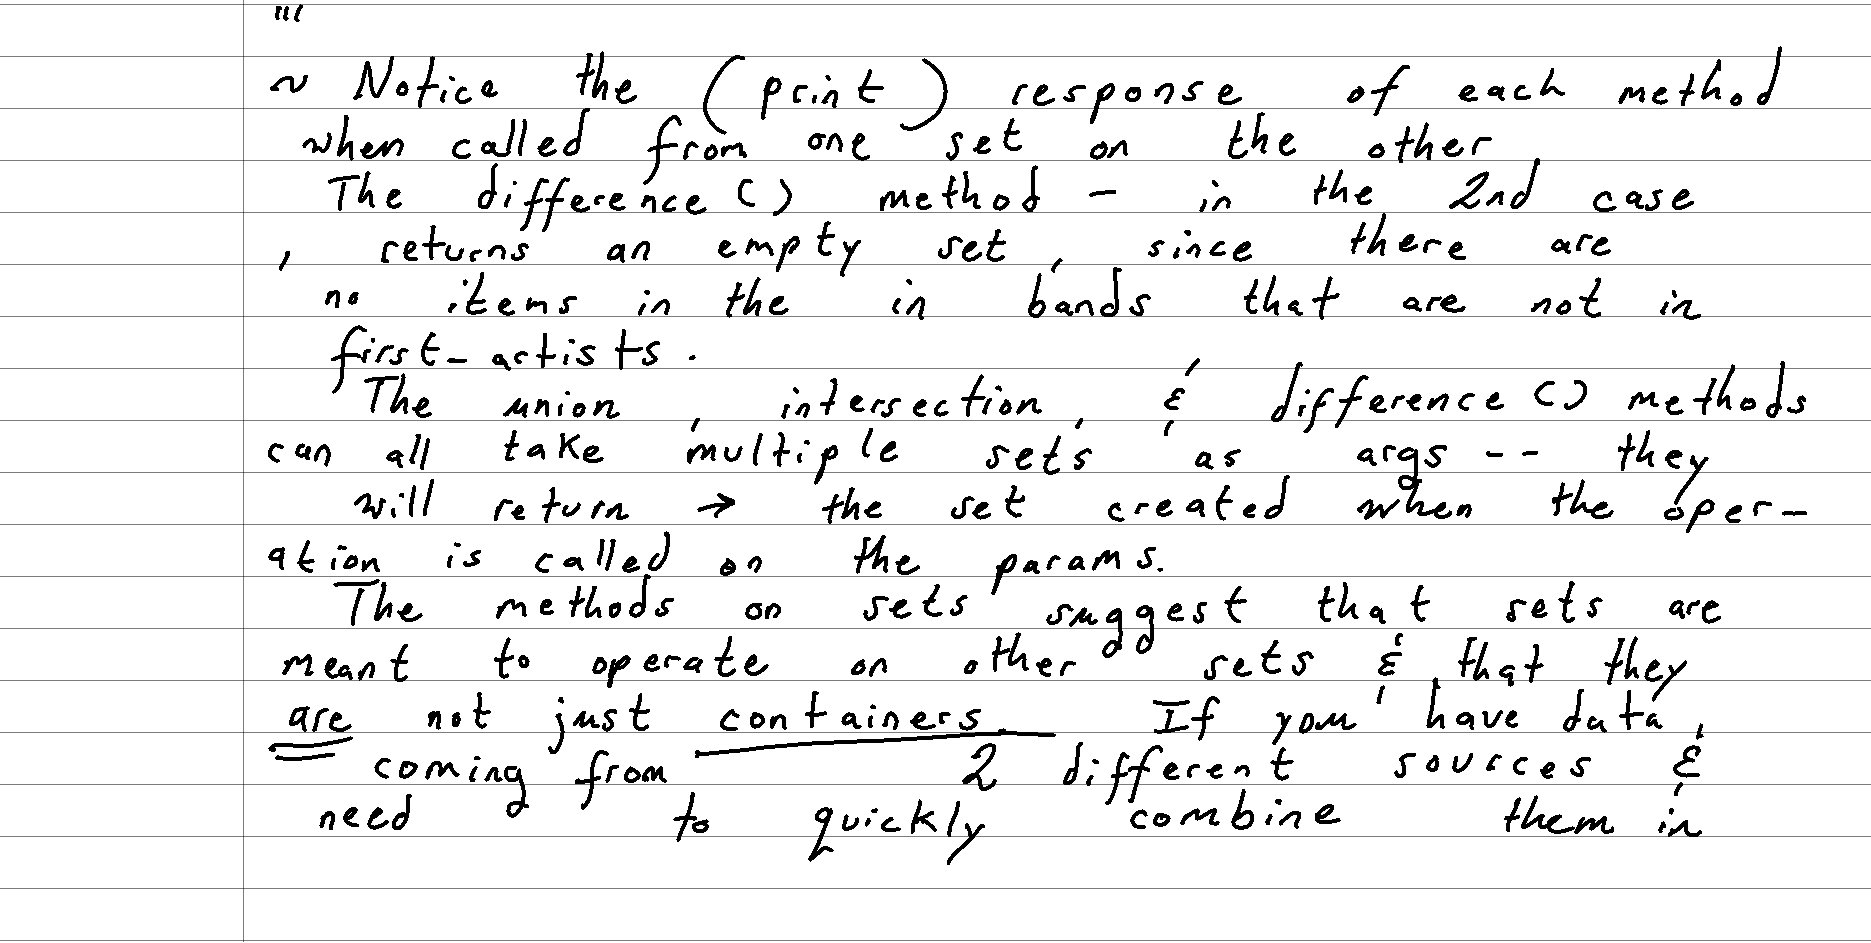 '''
~ Notice the (print) response of each method
when called from one set on the other
The difference() method - in the 2nd case
, returns an empty set, since there are
no items in the in bands that are not in
first_artists.
The union, intersection, & difference() methods
can all take multiple sets as args -- they
will return → the set created when the oper-
ation is called on the params.
The methods on sets suggest that sets are
meant to operate on other sets & that they
are not just containers. If you have data,
coming from 2 different sources &
need to quickly combine them in